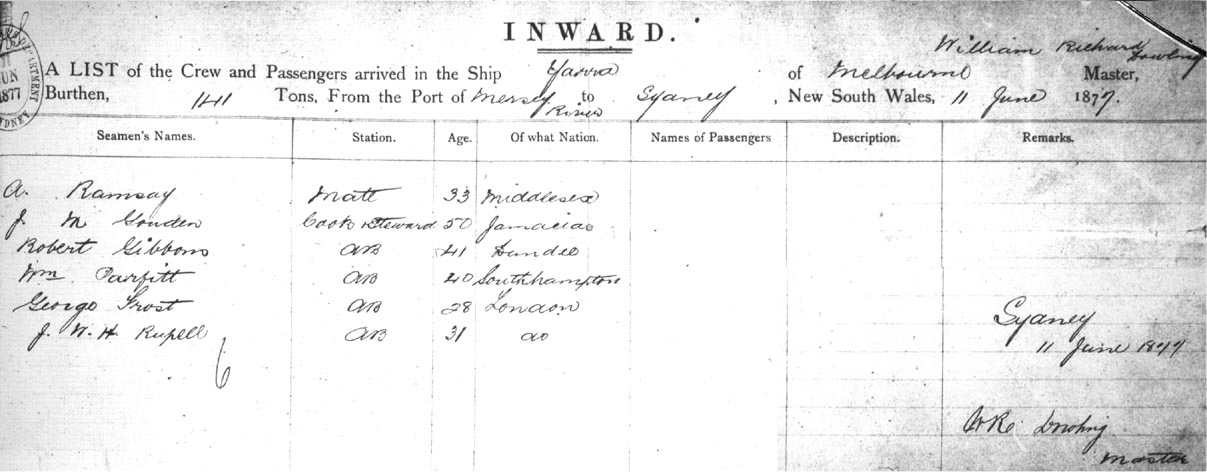 INWARD.
William Richard Dowling
A LIST of the Crew and Passengers arrived in the Ship Yarra of Melbourne Master,
Burthen, 141 Tons, From the Port of Mersey River to Sydney, New South Wales, 11 June 1877.
Seamen's Names. Station. Age. Of what Nation. Names of Passengers Description. Remarks.
A. Ramsay Mate 33 Middlesex
J. M Cook & Steward 50
Robert Gibbons AB 41 Dundee
Wm Parfitt AB 40 Southhampton
George Frost AB 28 London
J. W. H. AB 31 do
6
Sydney
11 June 1877
Dowling
Master
JUN
1877